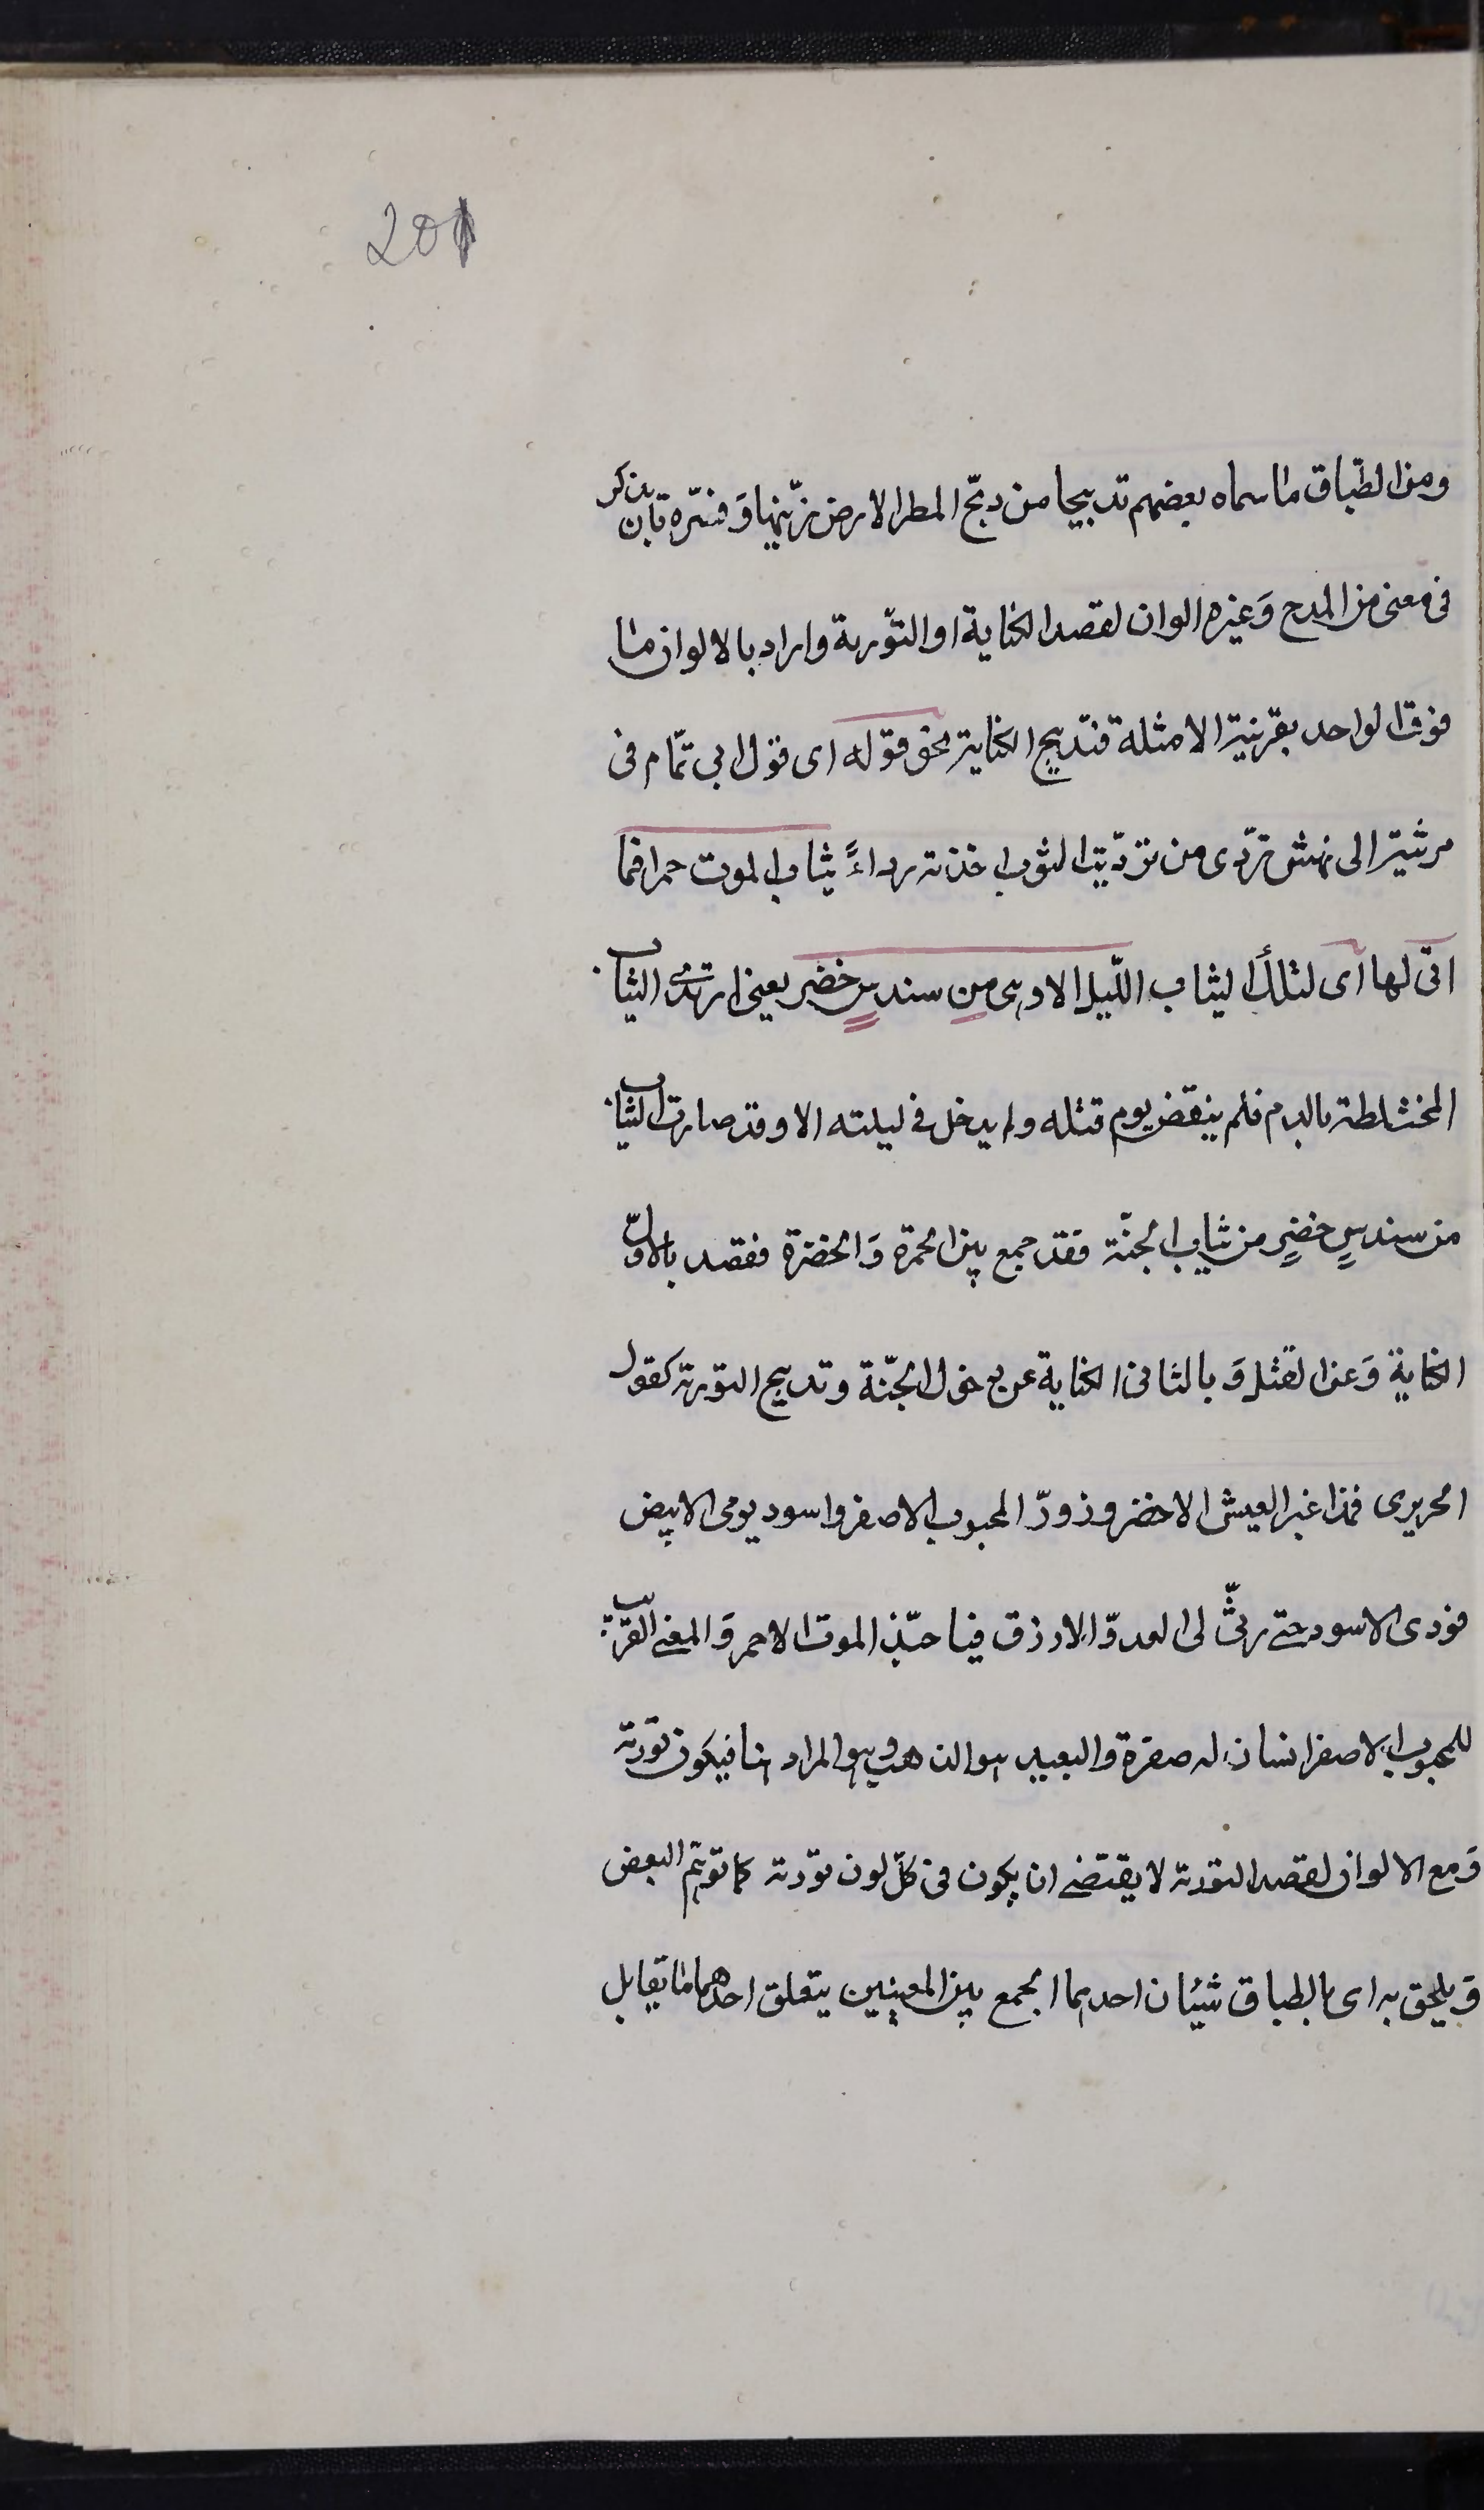 201
ومن الطّباق ما سماه بعضهم تدبيجا من دبّج المطر الارض زيّنها وَ فسّره بان يذكر
فى معنى من المدح وَ غيره الوان لقصد الكناية او التّورية واراد بالالوان ما
فوق الواحد بقرينة الامثلة فتدبيج الكناية نحو قوله اى قول ابى تمّام فى
مرثية ابى نهشل تردّى من تردّيت الثوب اخذته رداءً ثياب الموت حمرا فما
اتى لها اى لتلك الثياب اللّيل الا وهى من سندسٍ خضر يعنى ارتدى الثياب
المختلطة بالدم فلم ينقض يوم قتله ولم يدخل فى ليلته الا وقد صارت الثياب
من سندسٍ خضرٍ من ثياب الجنّة فقد جمع بين الحمرة وَ الخضرة فقصد بالاوّل
الكناية وَ عن القتل وَ بالثانى الكناية عن دخول الجنّة وتدبيج التورية كقول
الحريرى فمذ اغبر العيش الاخضر وازورّ المحبوب الاصفر واسود يومى الابيض
فودى الاسود حتى رثىّ لى العدوّ الازرق فيا حبّذ الموت الاحمر وَ المعنى القريب
للمحبوب الاصفر انسان له صفرة والبعيد هو الذهب وهو المراد هنا فيكون تورية
وَ مع الالوان لقصد التورية لا يقتضى ان يكون فى كلّ لون تورية كما توهّم البعض
وَ يلحق به اى بالطباق شيئان احدهما الجمع بين المعنيين يتعلق احدهما ما يقابل